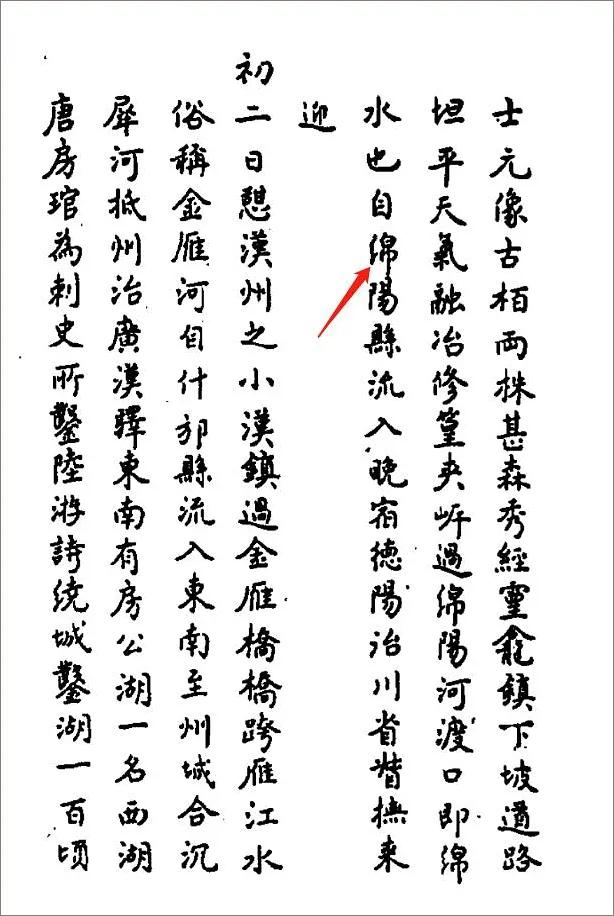 士元像古栢両株甚森秀經靈龕鎮下坡道路
坦平天氣融冶修篁夾岍過綿陽河渡口即綿
水也自綿陽縣流入晚宿德陽治川省督撫來
迎
初二日憇漢州之小漢鎮過金雁橋橋跨雁江水
俗稱金雁河自什邡縣流入東南至州城合沉
犀河抵州治廣漢驛東南有房公湖一名西湖
唐房琯為刺史所鑿陸游詩繞城鑿湖一百頃